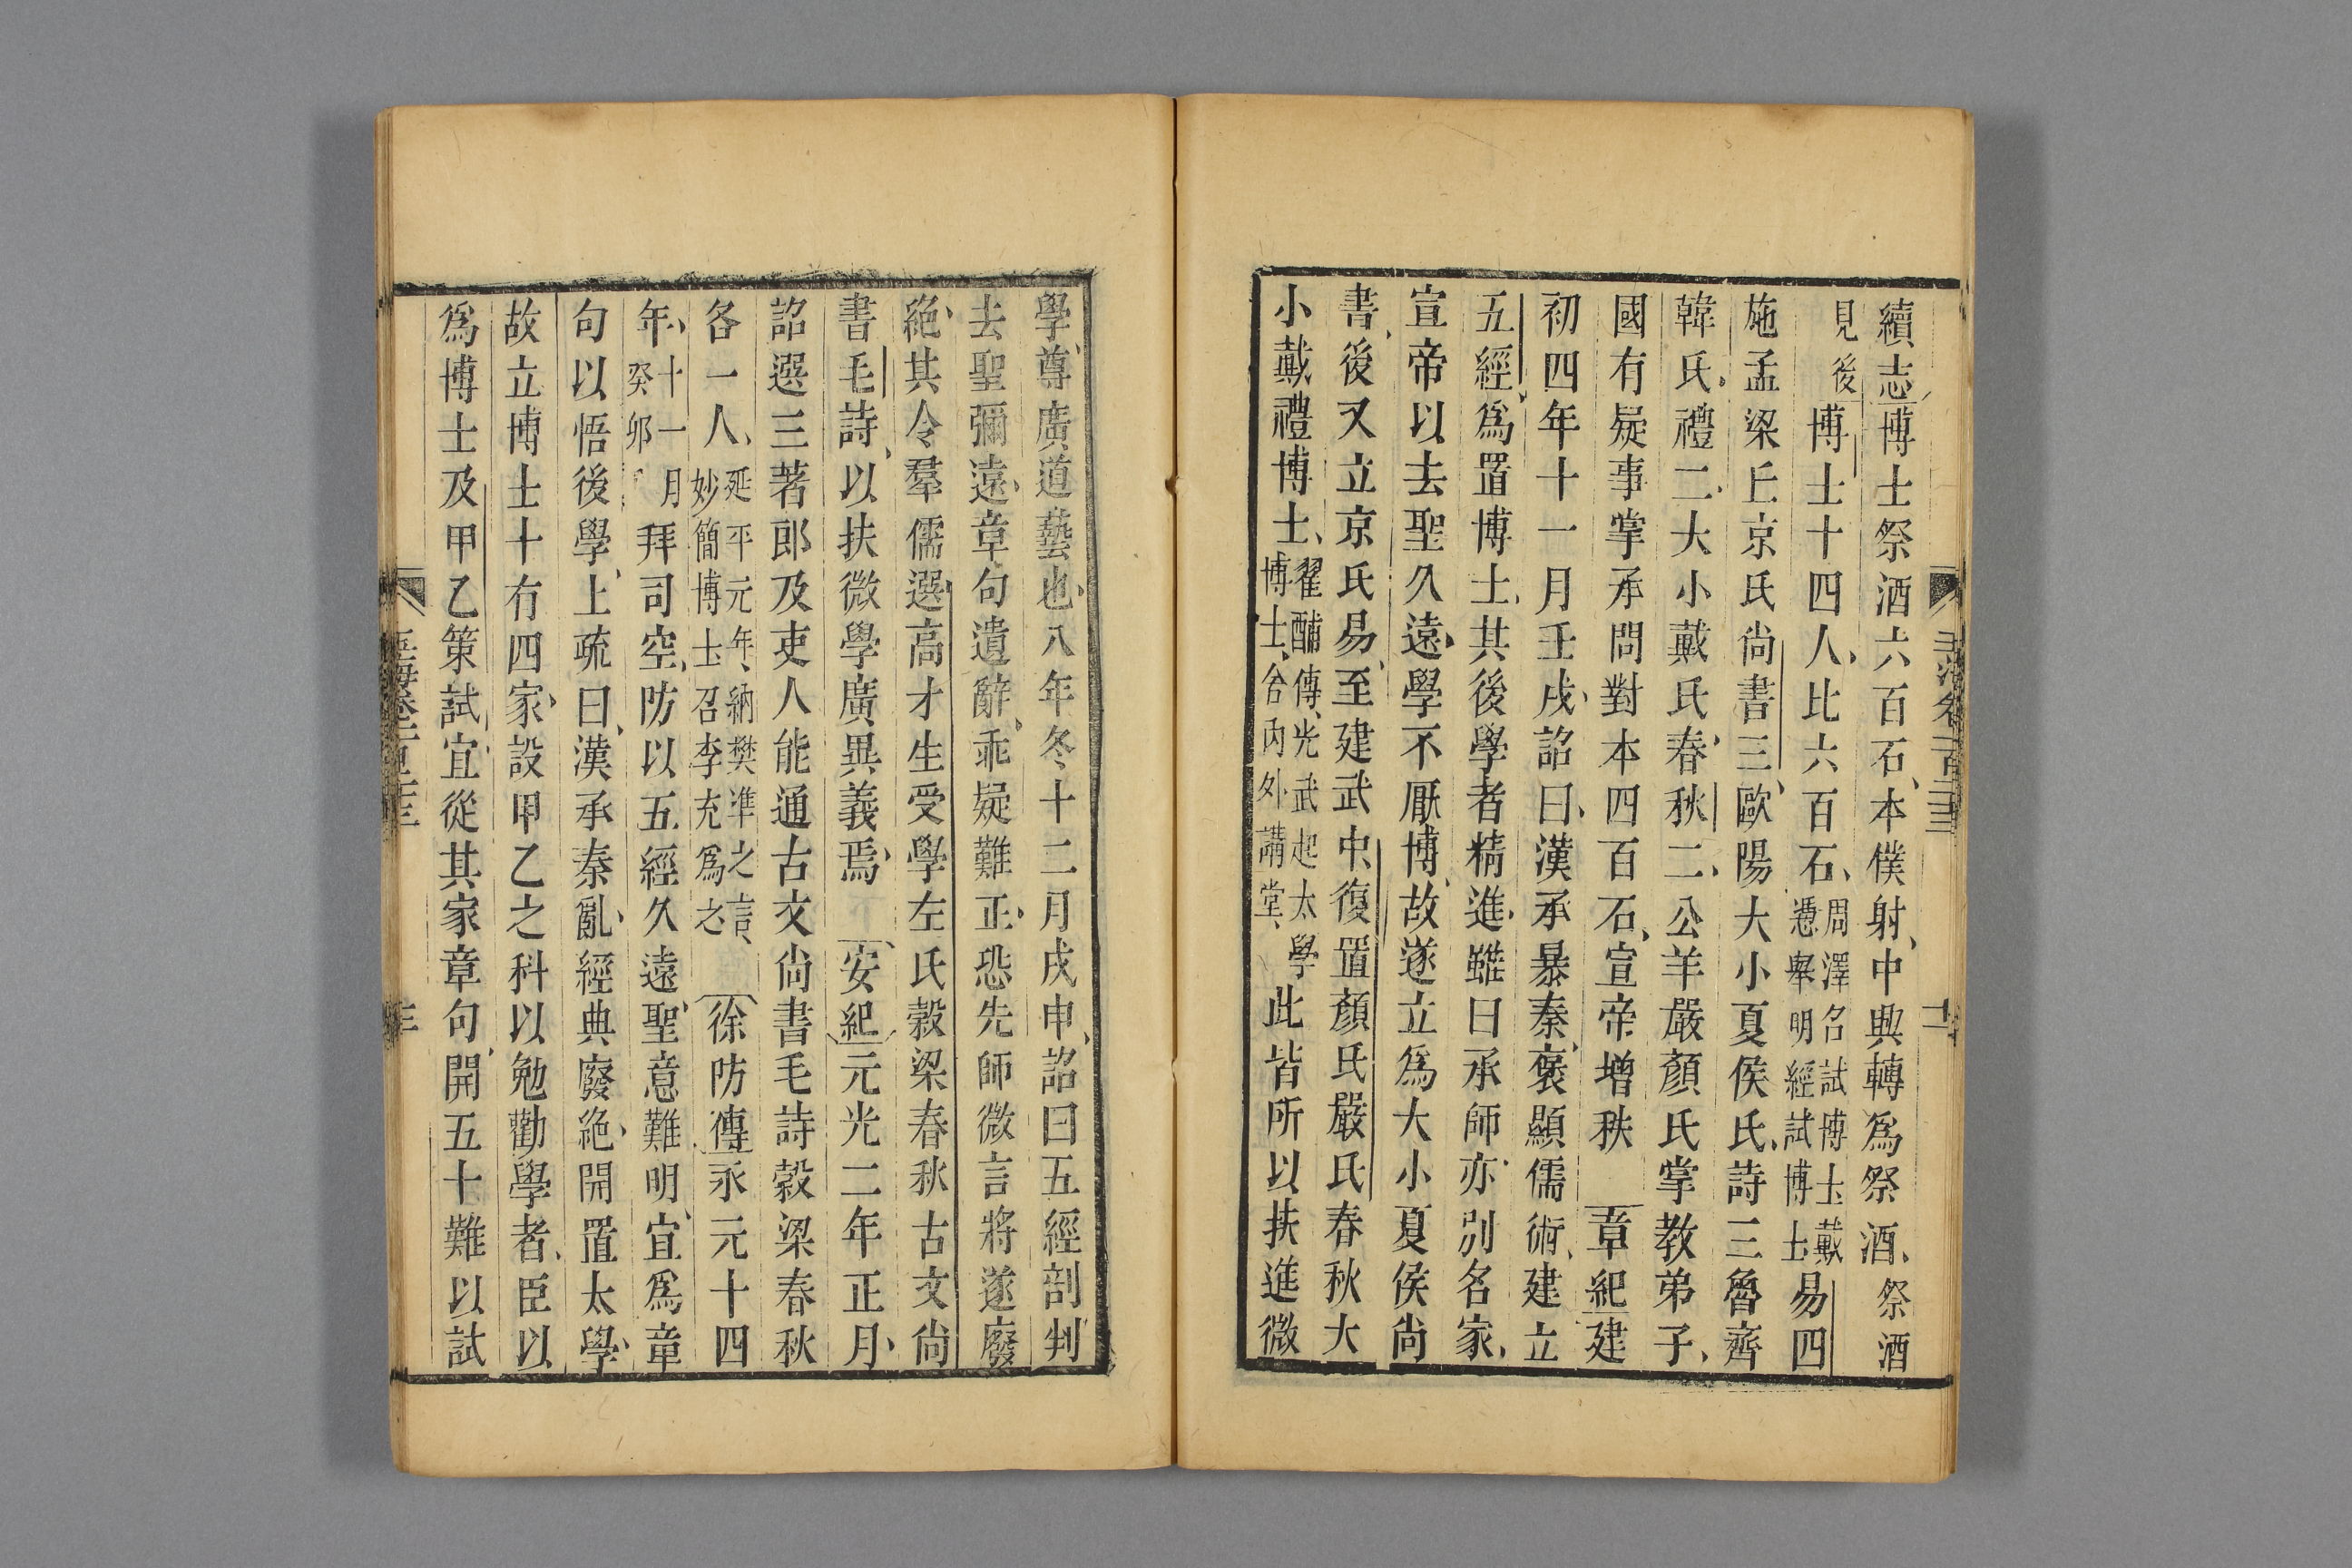 續志博士祭酒六百石本僕射中興轉爲祭酒祭酒
見後博士十四人比六百石周澤名試博士戴憑舉明經試博士易四
施孟梁丘京氏尚書三歐陽大小夏侯氏詩三魯齊
韓氏禮二大小戴氏春秋二公羊嚴顏氏掌教弟子
國有疑事掌承問對本四百石宣帝增秩 章紀建
初四年十一月壬戌詔曰漢承暴秦褒顯儒術建立
五經爲置博士其後學者精進雖曰承師亦別名家
宣帝以去聖久遠學不厭博故遂立爲大小夏侯尚
書後又立京氏易至建武中復置顏氏嚴氏春秋大
小戴禮博士翟酺傳光武起太學博士舍內外講堂此皆所以扶進微
學尊廣道藝也八年冬十二月戊申詔曰五經剖判
去聖彌遠章句遺辭乖疑難正恐先師微言將遂廢
絶其令羣儒選高才生受學左氏穀梁春秋古文尚
書毛詩以扶微學廣異義焉 安紀元光二年正月
詔選三著郎及吏人能通古文尚書毛詩穀梁春秋
各一人延平元年納樊準之言妙簡博士召李充爲之 徐防傳永元十四
年十一月癸卯拜司空防以五經久遠聖意難明宜爲章
句以悟後學上疏曰漢承秦亂經典廢絶開置太學
故立博士十有四家設甲乙之科以勉勸學者臣以
爲博士及甲乙策試宜從其家章句開五十難以試